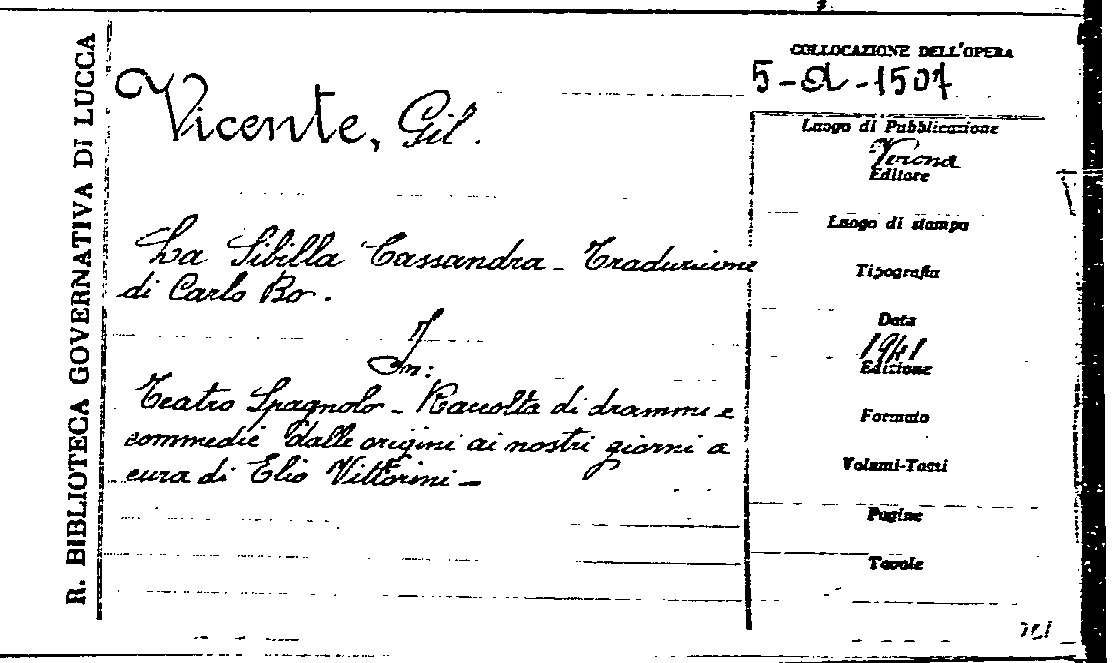 R. BIBLIOTECA GOVERNATIVA DI LUCCA
Vicente, Gil.
La Sibilla Cassandra - Traduzione
di Carlo Bo.
In:
Teatro Spagnolo - Raccolta di drammi e
commedie dalle origini ai nostri giorni a
cura di Elio Vittorini -
COLLOCAZIONE DELL'OPERA
5-a-1507
Luogo di Pubblicazione
Verona
Editore
Luogo di stampa
Tipografia
Data
1941
Edizione
Formato
Volumi-Tomi
Pagine
Tavole